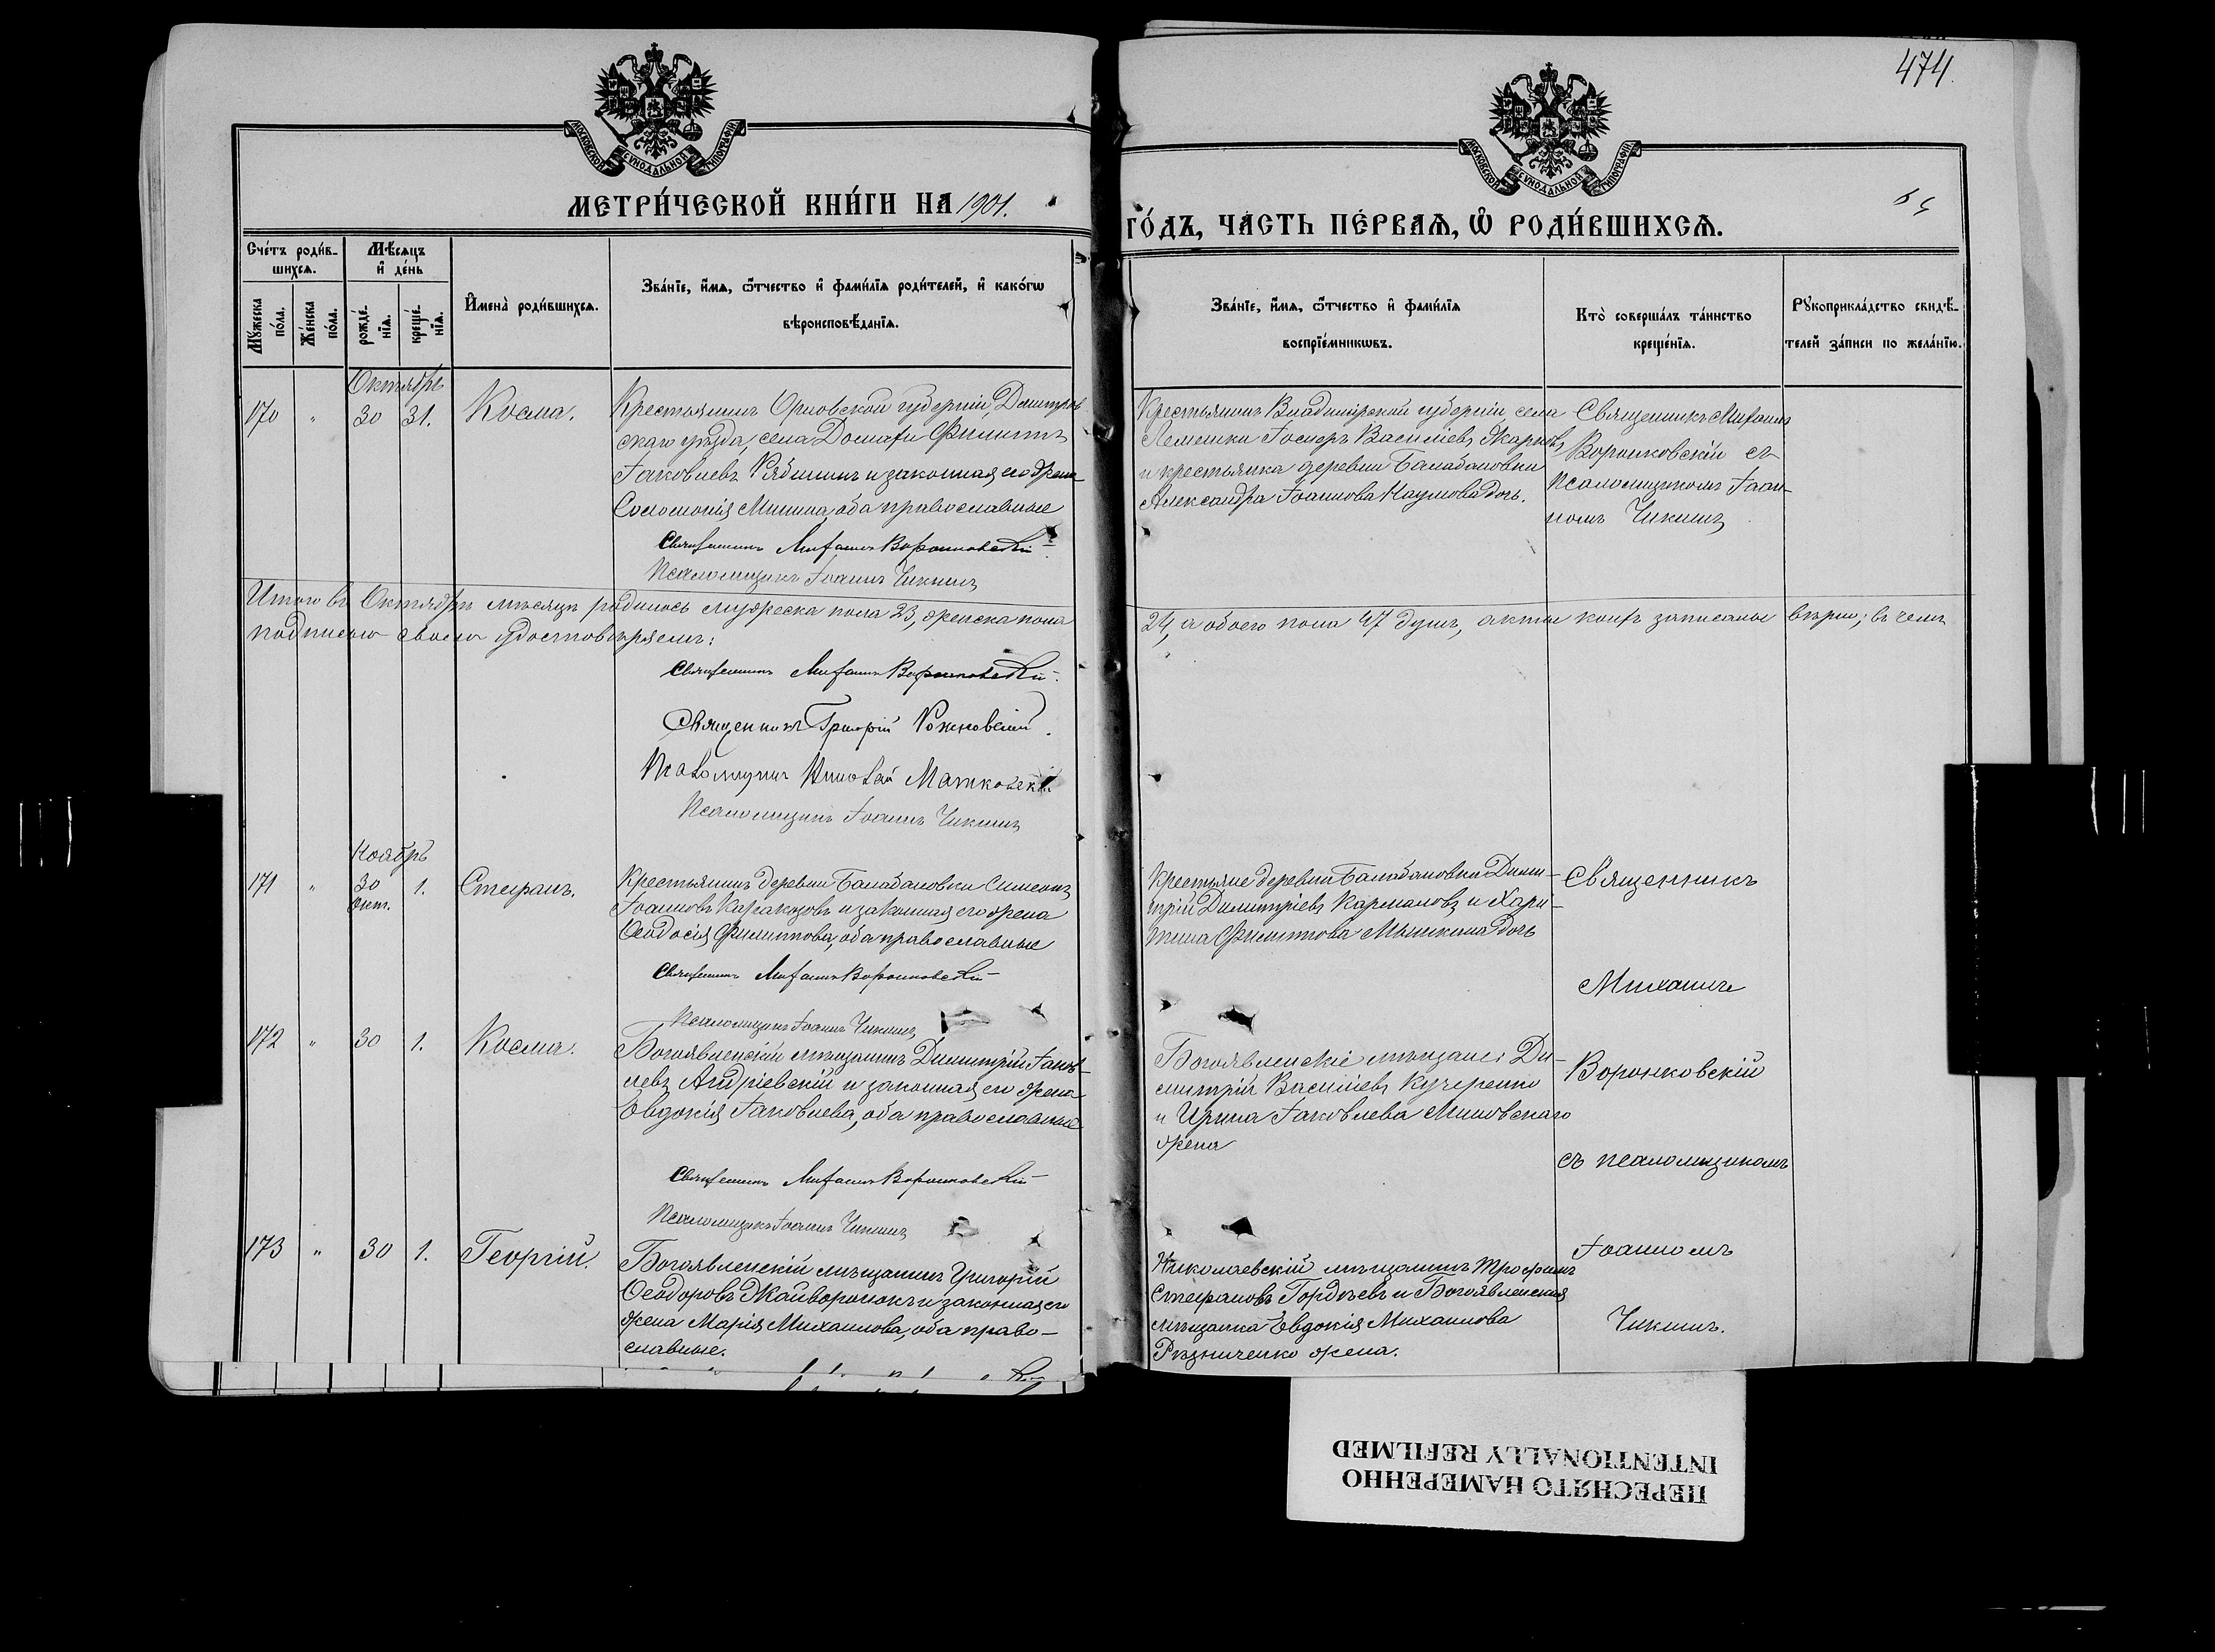 474
МОСКОВСКОЙ СѴНОДАЛЬНОЙ ТИПОГРАФІИ
МОСКОВСКОЙ СѴНОДАЛЬНОЙ ТИПОГРАФІИ
МЕТРИ́ЧЕСКОЙ КНИ́ГИ НА 1901.
ГО́ДЪ, ЧА́СТЬ ПЕ́РВАѦ, Ѡ҆ РОДИ́ВШИХСѦ.
Сче́тъ роди́в-
шихсѧ.
Мѣ́сѧцъ
и҆ де́нь
Мꙋ́жеска
по́ла.
Же́нска
по́ла.
рожде́-
нїѧ.
креще́-
нїѧ.
И҆мена̀ роди́вшихсѧ.
Зва́нїе, и҆́мѧ, ѻ҆́тчество и҆ фами́лїѧ роди́телей, и҆ како́гѡ
вѣроисповѣ́данїѧ.
Зва́нїе, и҆́мѧ, ѻ҆́тчество и҆ фами́лїѧ
воспрїе́мникѡвъ.
Кто̀ соверша́лъ та́инство
креще́нїѧ.
Рꙋкоприкла́дство свидѣ́-
телей за́писи по жела́нїю.
Октябрь
170 " 30 31. Косма.
Крестьянинъ Орловской губерніи, Дмитров
скаго уѣзда, села Домахи Филиппъ
Іаковлевъ Рябининъ и законная его жена
Соломонія Минина, оба православные
Священникъ Михаилъ Воронковскій
Псаломщикъ Іоаннъ Чикинъ
Крестьянинъ Владимірской губерніи, села
Лемешки Іосифъ Василіевъ Жарковъ
и крестьянка деревни Балабановки
Александра Іоаннова Наумова дочь.
Священникъ Михаилъ
Воронковскій съ
Псаломщикомъ Іоан-
номъ Чикинъ
Итого въ Октябрѣ мѣсяцѣ родилось мужеска пола 23, женска пола
24, а обоего пола 47 душъ, акты коихъ записаны вѣрно; въ чемъ
подписью своею удостовѣряемъ:
Священникъ Михаилъ Воронковскій
Священникъ Григорій Рожковскій.
Псаломщикъ Николай Матковскій
Псаломщикъ Іоаннъ Чикинъ
Ноябрь
171 " 30 1. Стефанъ.
Окт.
Крестьянинъ деревни Балабановки Симеонъ
Іоанновъ Карагозовъ и законная его жена
Ѳеодосія Филиппова, оба православные
Священникъ Михаилъ Воронковскій
Псаломщикъ Іоаннъ Чикинъ
Крестьяне деревни Балабановки Дими-
трій Димитріевъ Кармановъ и Хари-
тина Филиппова Мышкина дочь
Священникъ
Михаилъ
172 " 30 1. Косма.
Богоявленскій мѣщанинъ Димитрій Іаков-
левъ Андріевскій и законная его жена
Евдокія Іаковлева, оба православные
Священникъ Михаилъ Воронковскій
Псаломщикъ Іоаннъ Чикинъ
Богоявленскіе мѣщане: Ди-
митрій Василіевъ Кучеренко
и Ирина Іаковлева Миновскаго
жена
Воронковскій
съ псаломщикомъ
173 " 30 1. Георгій.
Богоявленскій мѣщанинъ Григорій
Ѳеодоровъ Жайворонокъ и законная его
жена Марія Михаилова, оба право-
славные.
Николаевскій мѣщанинъ Трофимъ
Стефановъ Гордѣевъ и Богоявленская
мѣщанка Евдокія Михаилова
Рѣзниченко жена.
Іоанномъ
Чикинъ.
ПЕРЕСНЯТО НАМЕРЕННО
INTENTIONALLY REFILMED